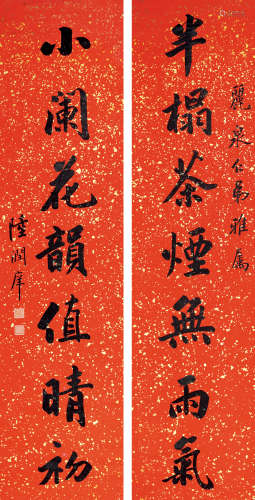 麗泉仁弟雅屬
半榻茶煙無雨氣
小阑花韻值晴初
陸潤庠